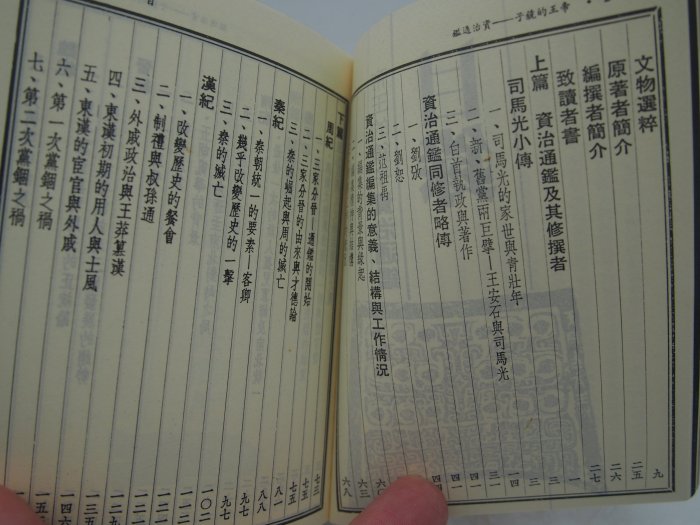 帝王的鏡子——資治通鑑
文物選粹 九
原著者簡介 二五
編撰者簡介 二六
致讀者書 二七
上篇 資治通鑑及其修撰者 一
司馬光小傳 三
一、司馬光的家世與青壯年 三
二、新、舊黨兩巨擘——王安石與司馬光 一四
三、白首執政與著作 三一
資治通鑑同修者略傳 四一
一、劉攽
二、劉恕
三、范祖禹
資治通鑑編集的意義、結構與工作情況 六〇
一、編集的背景與緣起 六三
六八
下篇
周紀 七三
一、三家分晉——通鑑的開始
二、三家分晉的由來與才德論
三、秦的崛起與周的滅亡 八一
秦紀 八八
一、秦朝統一的要素——客卿 八八
二、幾乎改變歷史的一擊 九七
三、秦的滅亡 九七
漢紀 一〇二
一、改變歷史的餐會
二、制禮與叔孫通
三、外戚政治與王莽篡漢
四、東漢初期的用人與士風
五、東漢的宦官與外戚
六、第一次黨錮之禍
七、第二次黨錮之禍